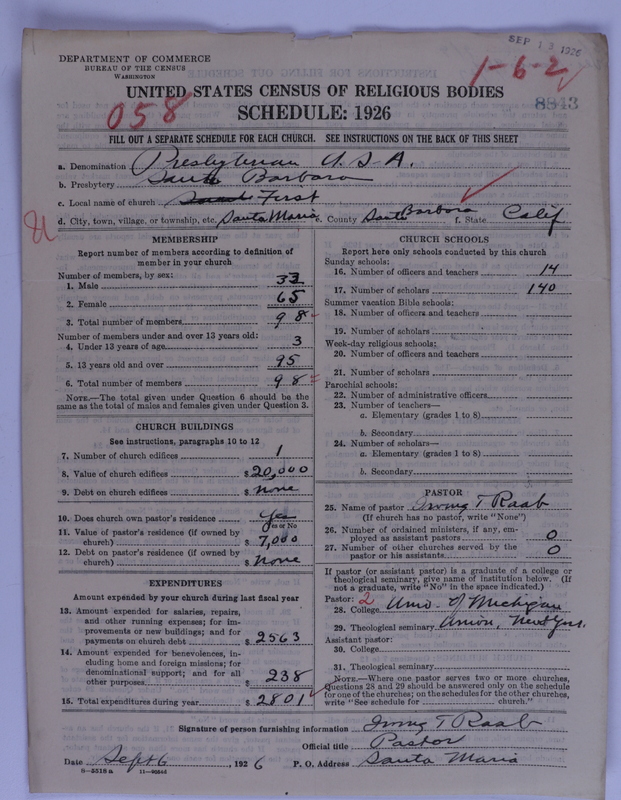 SEP 13 1926
DEPARTMENT OF COMMERCE
BUREAU OF THE CENSUS
WASHINGTON
1-6-2
UNITED STATES CENSUS OF RELIGIOUS BODIES
058
SCHEDULE: 1926
8843
FILL OUT A SEPARATE SCHEDULE FOR EACH CHURCH. SEE INSTRUCTIONS ON THE BACK OF THIS SHEET
a. Denomination Presbyterian U.S.A.
b. Presbytery Santa Barbara
c. Local name of church First
d. City, town, village, or township, etc. Santa Maria e. County Santa Barbara f. State Calif
MEMBERSHIP
Report number of members according to definition of
member in your church
Number of members, by sex:
1. Male 33
2. Female 65
3. Total number of members 98
Number of members under and over 13 years old:
4. Under 13 years of age 3
5. 13 years old and over 95
6. Total number of members 98
NOTE.—The total given under Question 6 should be the
same as the total of males and females given under Question 3.
CHURCH BUILDINGS
See instructions, paragraphs 10 to 12
7. Number of church edifices 1
8. Value of church edifices $ 20,000
9. Debt on church edifices $ none
10. Does church own pastor's residence Yes
Yes or No
11. Value of pastor's residence (if owned by
church) $ 7,000
12. Debt on pastor's residence (if owned by
church) $ none
EXPENDITURES
Amount expended by your church during last fiscal year
13. Amount expended for salaries, repairs,
and other running expenses; for im-
provements or new buildings; and for
payments on church debt $ 2563
14. Amount expended for benevolences, in-
cluding home and foreign missions; for
denominational support; and for all
other purposes $ 238
15. Total expenditures during year $ 2801
CHURCH SCHOOLS
Report here only schools conducted by this church
Sunday schools:
16. Number of officers and teachers 14
17. Number of scholars 140
Summer vacation Bible schools:
18. Number of officers and teachers
19. Number of scholars
Week-day religious schools:
20. Number of officers and teachers
21. Number of scholars
Parochial schools:
22. Number of administrative officers
23. Number of teachers—
a. Elementary (grades 1 to 8)
b. Secondary
24. Number of scholars—
a. Elementary (grades 1 to 8)
b. Secondary
PASTOR
25. Name of pastor Irving T Raab
(If church has no pastor, write "None")
26. Number of ordained ministers, if any, em-
ployed as assistant pastors 0
27. Number of other churches served by the
pastor or his assistants 0
If pastor (or assistant pastor) is a graduate of a college or
theological seminary, give name of institution below. (If
not a graduate, write "No" in the space indicated.)
Pastor: 2
28. College Univ. of Michigan
29. Theological seminary Union, New York
Assistant pastor:
30. College
31. Theological seminary
NOTE.—Where one pastor serves two or more churches,
Questions 28 and 29 should be answered only on the schedule
for one of the churches; on the schedules for the other churches,
write "See schedule for church."
Signature of person furnishing information Irving T Raab
Official title Pastor
Date Sept 6, 1926 P. O. Address Santa Maria